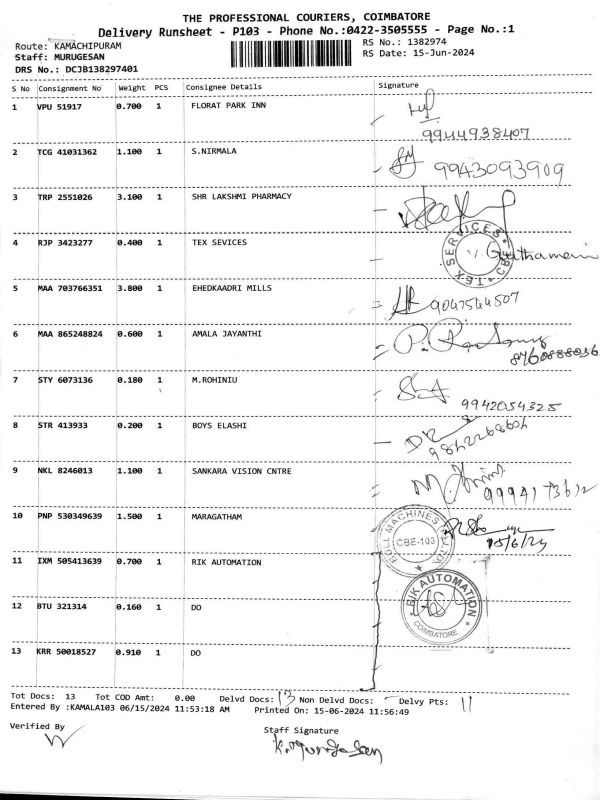 THE PROFESSIONAL COURIERS, COIMBATORE
Delivery Runsheet - P103 - Phone No.:0422-3505555 - Page No.:1
Route: KAMACHIPURAM RS No.: 1382974
Staff: MURUGESAN RS Date: 15-Jun-2024
DRS No.: DCJB138297401
S No Consignment No Weight PCS Consignee Details Signature
1 VPU 51917 0.700 1 FLORAT PARK INN
9944938407
2 TCG 41031362 1.100 1 S.NIRMALA 9943093909
3 TRP 2551026 3.100 1 SHR LAKSHMI PHARMACY
4 RJP 3423277 0.400 1 TEX SEVICES TEX SERVICES CBE
5 MAA 703766351 3.800 1 EHEDKAADRI MILLS 9047544507
6 MAA 865248824 0.600 1 AMALA JAYANTHI
8760888036
7 STY 6073136 0.180 1 M.ROHINIU
9942054325
8 STR 413933 0.200 1 BOYS ELASHI
9842268604
9 NKL 8246013 1.100 1 SANKARA VISION CNTRE
10 PNP 530349639 1.500 1 MARAGATHAM
CBE-103 15/6/24
11 IXM 505413639 0.700 1 RIK AUTOMATION
RIK AUTOMATION
COIMBATORE
12 BTU 321314 0.160 1 DO
13 KRR 50018527 0.910 1 DO
Tot Docs: 13 Tot COD Amt: 0.00 Delvd Docs: 13 Non Delvd Docs: - Delvy Pts: 11
Entered By :KAMALA103 06/15/2024 11:53:18 AM Printed On: 15-06-2024 11:56:49
Verified By Staff Signature
K. Murugesan